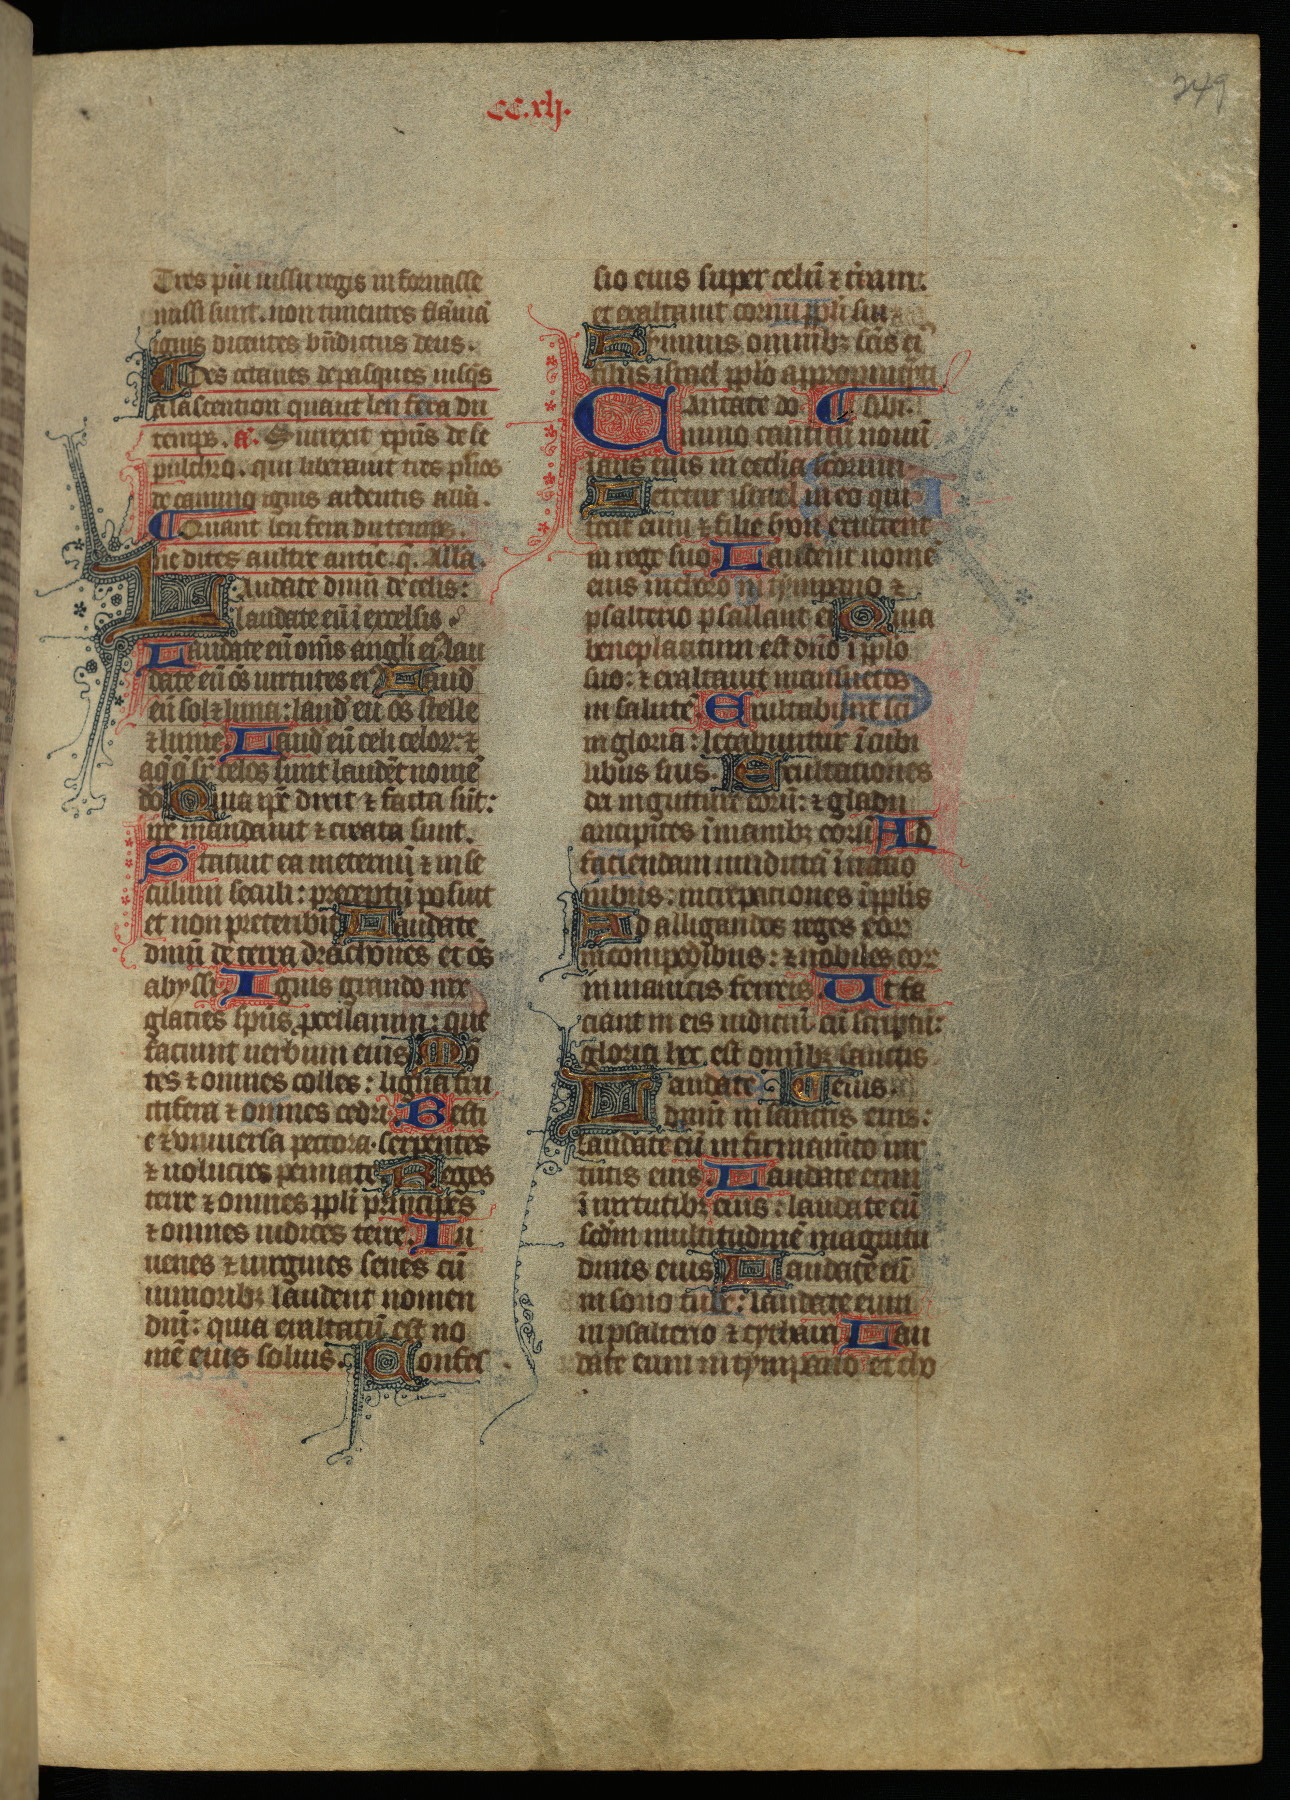 CC.xlj.
249
Tres pũi iussu regis in fornasse
missi sunt. non timentes flãmã
ignis dicentes bñdictus deus.
Des octaues de pasques iusqs
a lascention quant len fera du
temps. a. Surrexit xp̃us de se
pulchro. qui liberauit tres p̃uos
de camino ignis ardentis all̃a.
Quant len fera du temps
ne dites aultre antiẽ. q̃. Alla.
Laudate dnm̃ de celis:
laudate eũ ĩ excelsis
Laudate eũ om̃s angli ei? lau
date eũ õs uirtutes ei? Laud
eũ sol ⁊ luna: laud eũ õs stelle
⁊ lumẽ. Laud eũ celi celoꝝ: ⁊
aq̃ q̃ sr̃ celos sunt laudẽt nomẽ
do. Quia ip̃e dixit ⁊ facta sũt:
ip̃e mandauit ⁊ creata sunt.
Statuit ea in eternũ ⁊ in se
culum seculi: preceptũ posuit
et non preteribit. Laudate
dnm̃ de terra drachones et õs
abyssi. Ignis grando nix
glacies sp̃us p̃cellarum: que
faciunt uerbum eius Mõ
tes ⁊ omnes colles: ligna fru
ctifera ⁊ omnes cedri. Besti
e ⁊ vniuersa pecora. serpentes
⁊ uolucres pennate. Reges
terre ⁊ omnes ppl̃i principes
⁊ omnes iudices terre. Iu
uenes ⁊ uirgines senes cũ
iunioribꝫ laudent nomen
dnĩ: quia exaltatũ est no
mẽ eius solius. Confes
sio eius super celũ ⁊ tr̃am:
et exaltauit cornu ppl̃i sui
Hymnus omnibꝫ scĩs ei?
filiis israel pplo appropinq̃ti
Cantate do. sibi.
mino canticũ nouũ
laus eius in ecclia sc̃orum
Letetur israel in eo qui
fecit eum ⁊ filie syon exultent
in rege suo. Laudent nomẽ
eius in choro in tympano ⁊
psalterio psallant ei. Quia
beneplacitum est dño ĩ pplo
suo: ⁊ exaltauit mansuetos
in salutẽ. Exultabunt sc̃i
in gloria: letabuntur ĩ cubi
libus suis. Exultationes
dei in gutture eorũ: ⁊ gladii
ancipites ĩ manibꝫ eorũ. Ad
faciendam uindictã ĩ natio
nibus: increpationes ĩ ppl̃is
Ad alligandos reges eoꝝ
in compedibus: ⁊ nobiles eoꝝ
in manicis ferreis. Ut fa
ciant in eis iudiciũ cõscriptũ:
gloria hec est omibꝫ sanctis
Laudate eius.
dnm̃ in sanctis eius:
laudate eũ in firmam̃to uir
tutis eius. Laudate eum
ĩ uirtutibꝫ eius: laudate eũ
scd̃m multitudinẽ magnitu
dinis eius. Laudate eũ
in sono tube: laudate eum
in psalterio ⁊ cythara. Lau
date eum in tympano et cho